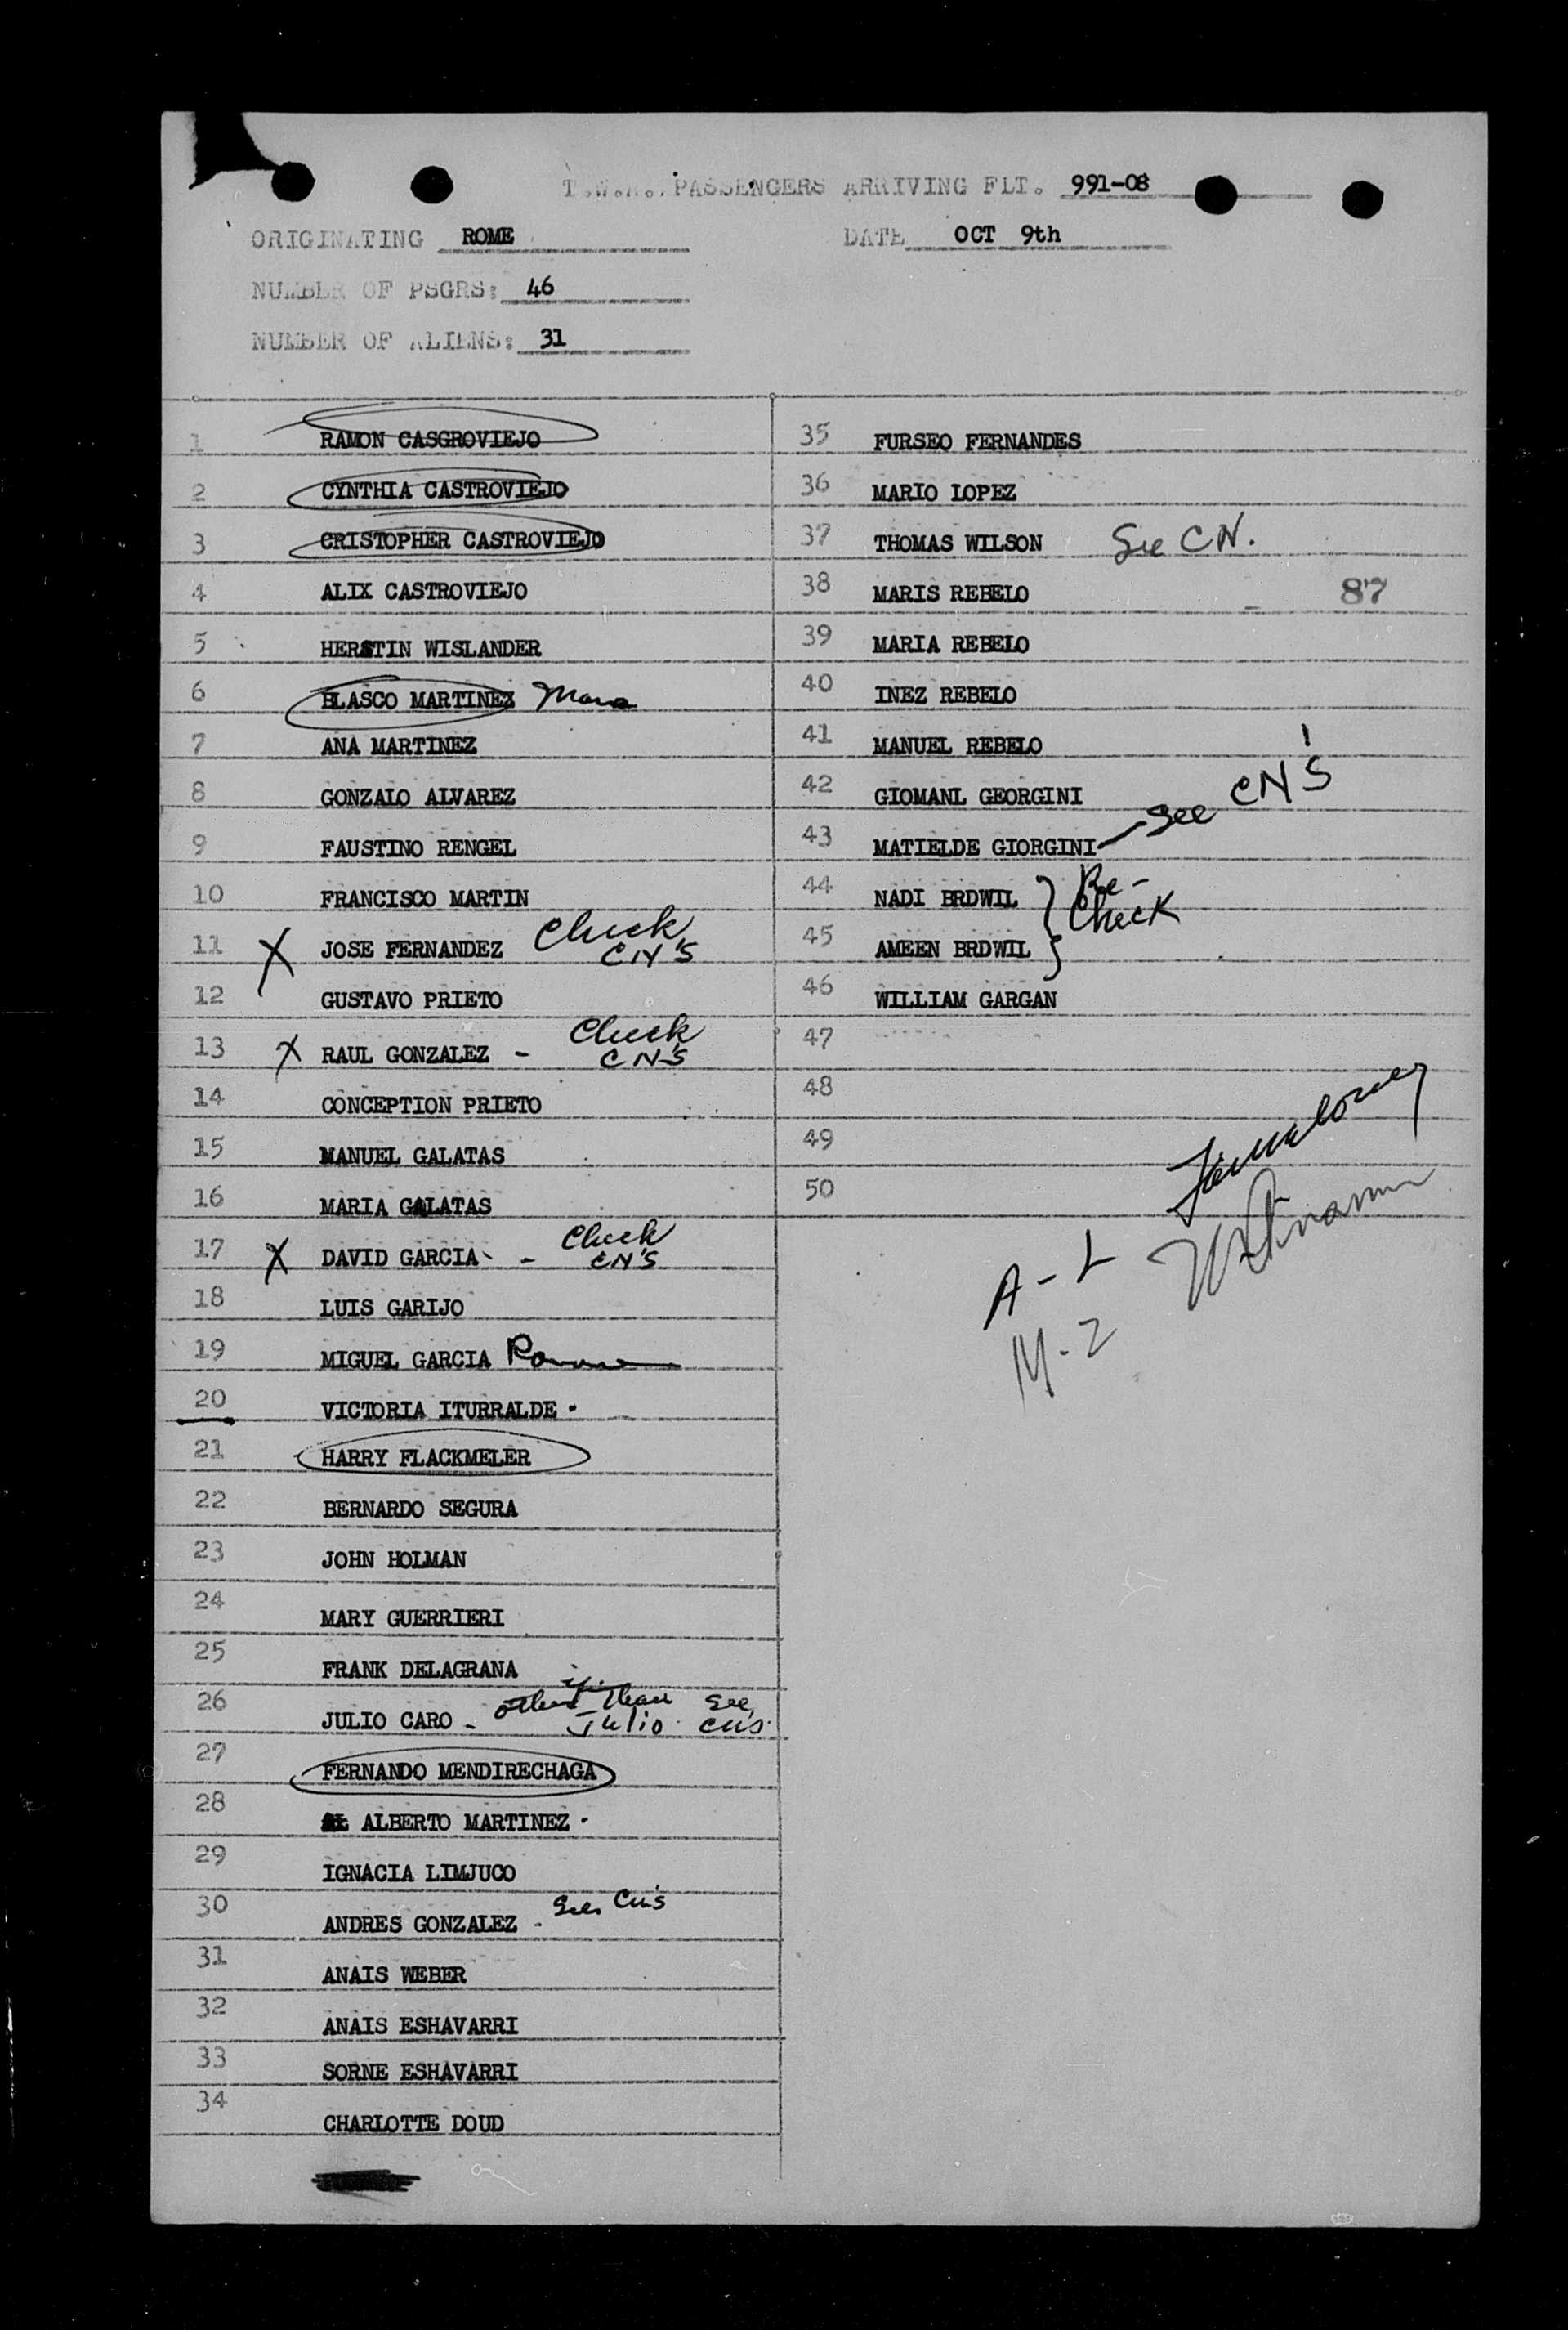 T.W.A. PASSENGERS ARRIVING FLT. 991-08
ORIGINATING ROME DATE OCT 9th
NUMBER OF PSGRS: 46
NUMBER OF ALIENS: 31
1 RAMON CASGROVIEJO
2 CYNTHIA CASTROVIEJO
3 CRISTOPHER CASTROVIEJO
4 ALIX CASTROVIEJO
5 HERSTIN WISLANDER
6 BLASCO MARTINEZ
7 ANA MARTINEZ
8 GONZALO ALVAREZ
9 FAUSTINO RENGEL
10 FRANCISCO MARTIN
11 X JOSE FERNANDEZ Check CN'S
12 GUSTAVO PRIETO
13 X RAUL GONZALEZ - Check CN'S
14 CONCEPTION PRIETO
15 MANUEL GALATAS
16 MARIA GALATAS
17 X DAVID GARCIA - Check CN'S
18 LUIS GARIJO
19 MIGUEL GARCIA
20 VICTORIA ITURRALDE
21 HARRY FLACKMELER
22 BERNARDO SEGURA
23 JOHN HOLMAN
24 MARY GUERRIERI
25 FRANK DELAGRANA
26 JULIO CARO - if other than Julio see CN's
27 FERNANDO MENDIRECHAGA
28 ALBERTO MARTINEZ
29 IGNACIA LIMJUCO
30 ANDRES GONZALEZ - See CN's
31 ANAIS WEBER
32 ANAIS ESHAVARRI
33 SORNE ESHAVARRI
34 CHARLOTTE DOUD
35 FURSEO FERNANDES
36 MARIO LOPEZ
37 THOMAS WILSON See CN.
38 MARIS REBELO 87
39 MARIA REBELO
40 INEZ REBELO
41 MANUEL REBELO
42 GIOMANL GEORGINI
43 MATIELDE GIORGINI - See CN'S
44 NADI BRDWIL } Re-Check
45 AMEEN BRDWIL
46 WILLIAM GARGAN
47
48
49
50
A-L
M-Z